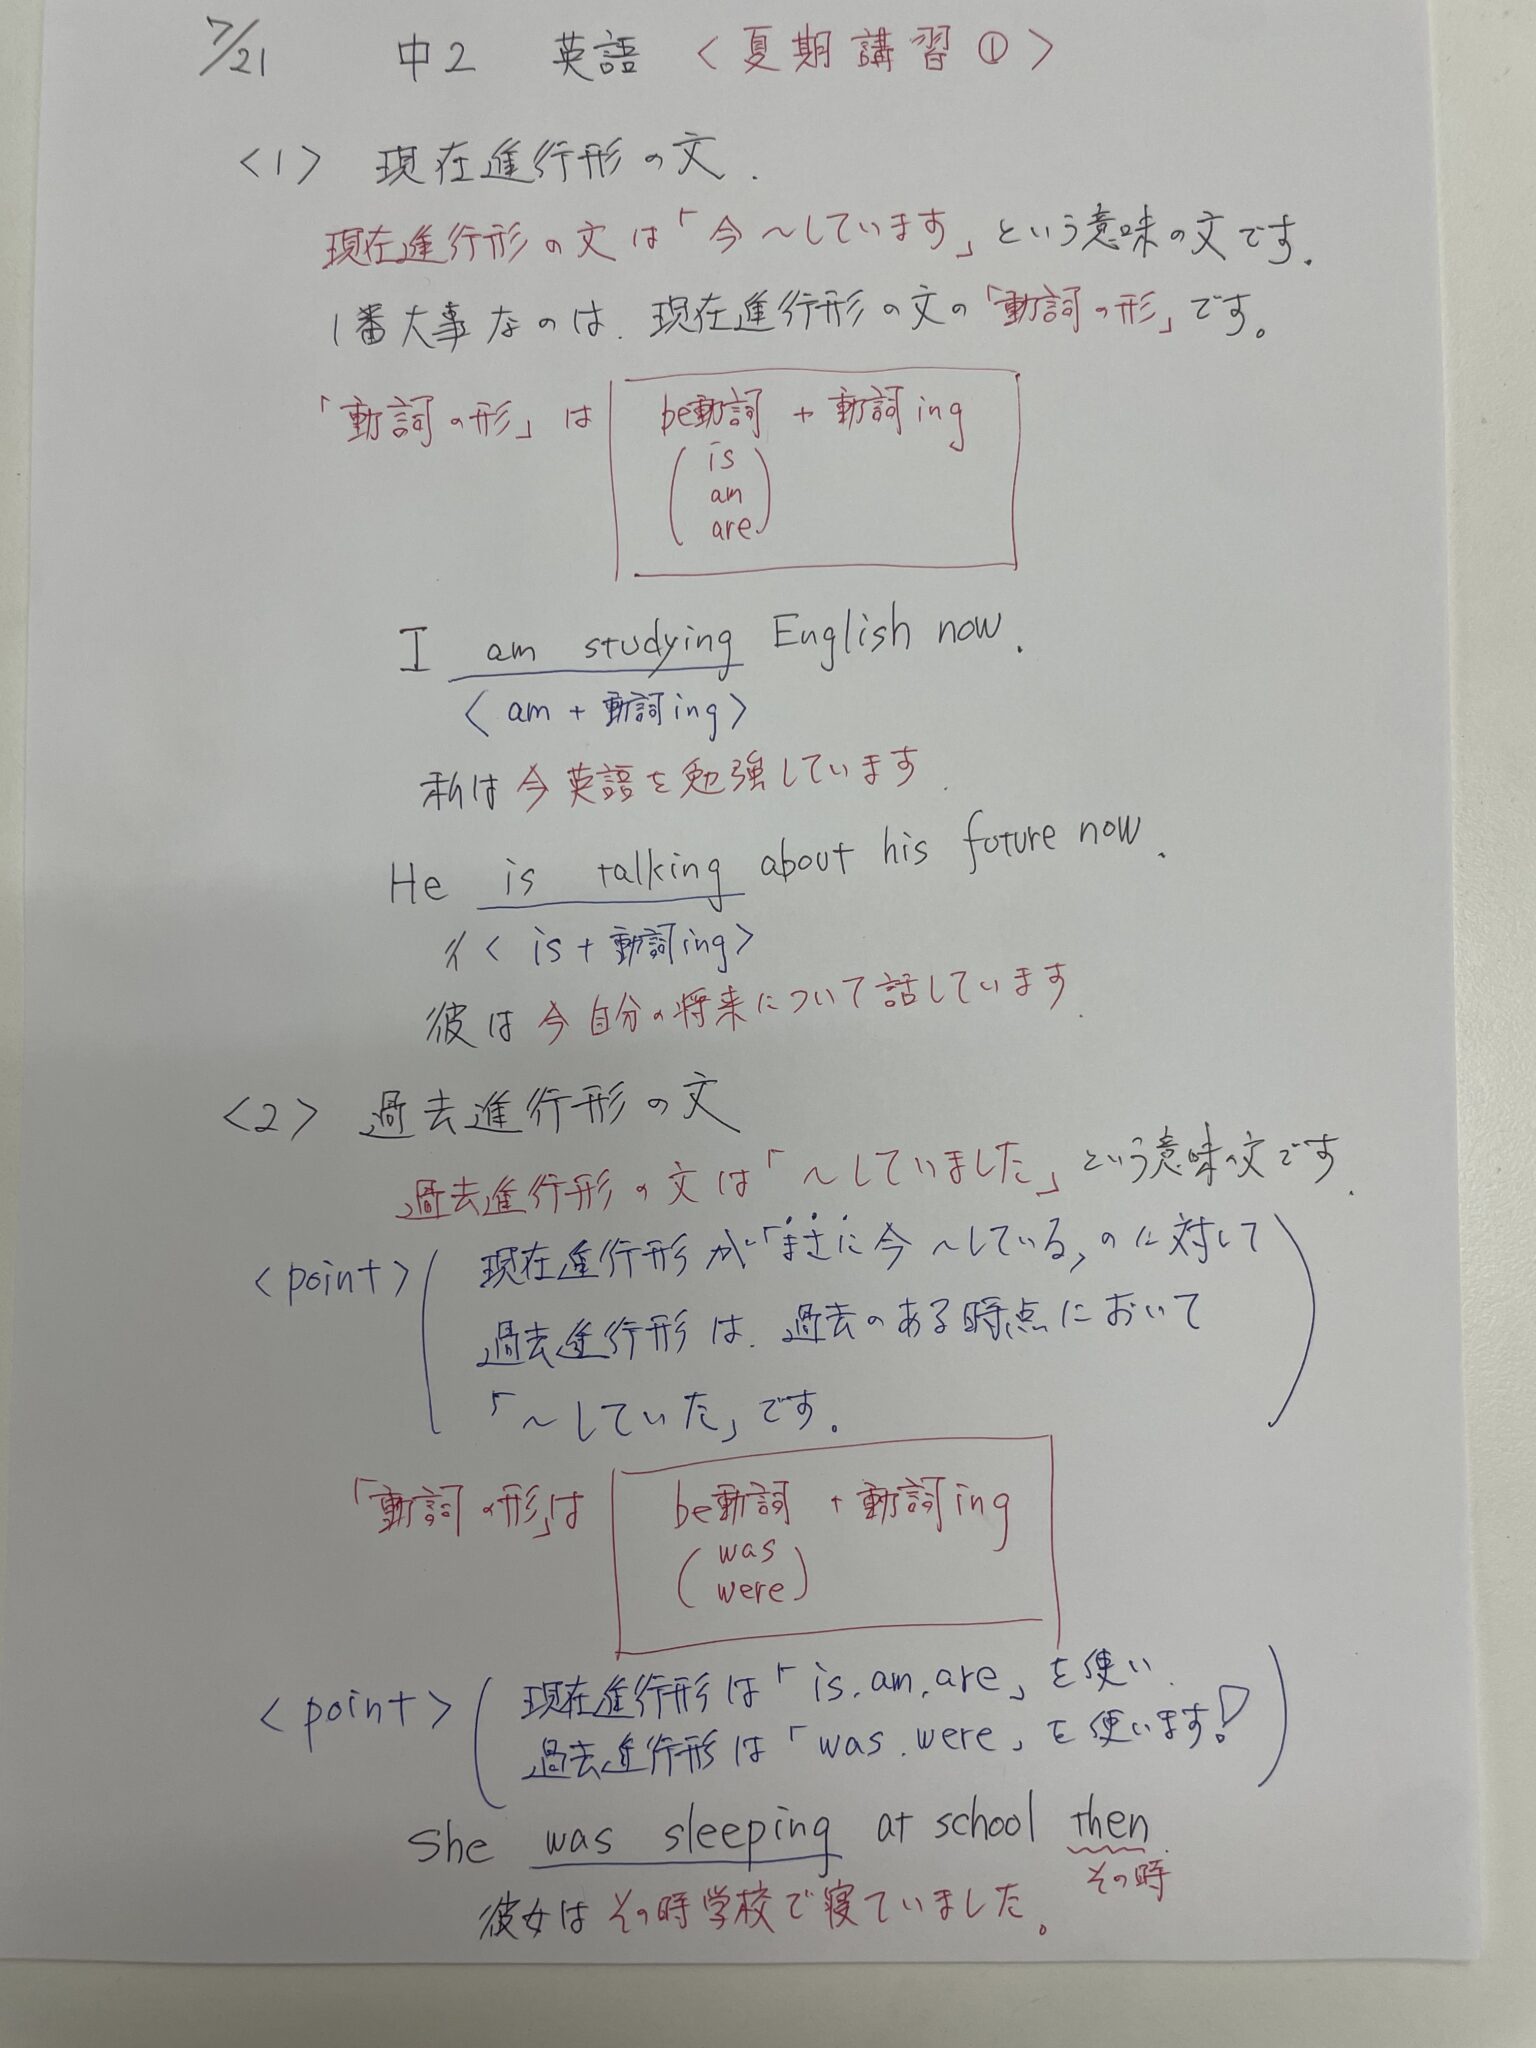 7/21 中2 英語 <夏期講習①>
<1> 現在進行形の文.
現在進行形の文は「今~しています」という意味の文です.
1番大事なのは.現在進行形の文の「動詞の形」です。
「動詞の形」は be動詞 + 動詞ing
(is
am
are)
I am studying English now.
<am + 動詞ing>
私は今英語を勉強しています.
He is talking about his future now.
<is + 動詞ing>
彼は今自分の将来について話しています.
<2> 過去進行形の文
過去進行形の文は「~していました」という意味の文です.
<point> (現在進行形が「まさに今~している」のに対して
過去進行形は.過去のある時点において
「~していた」です.)
「動詞の形」は be動詞 + 動詞ing
(was
were)
<point> (現在進行形は「is.am.are」を使い.
過去進行形は「was.were」を使います!)
She was sleeping at school then.
その時
彼女はその時学校で寝ていました。